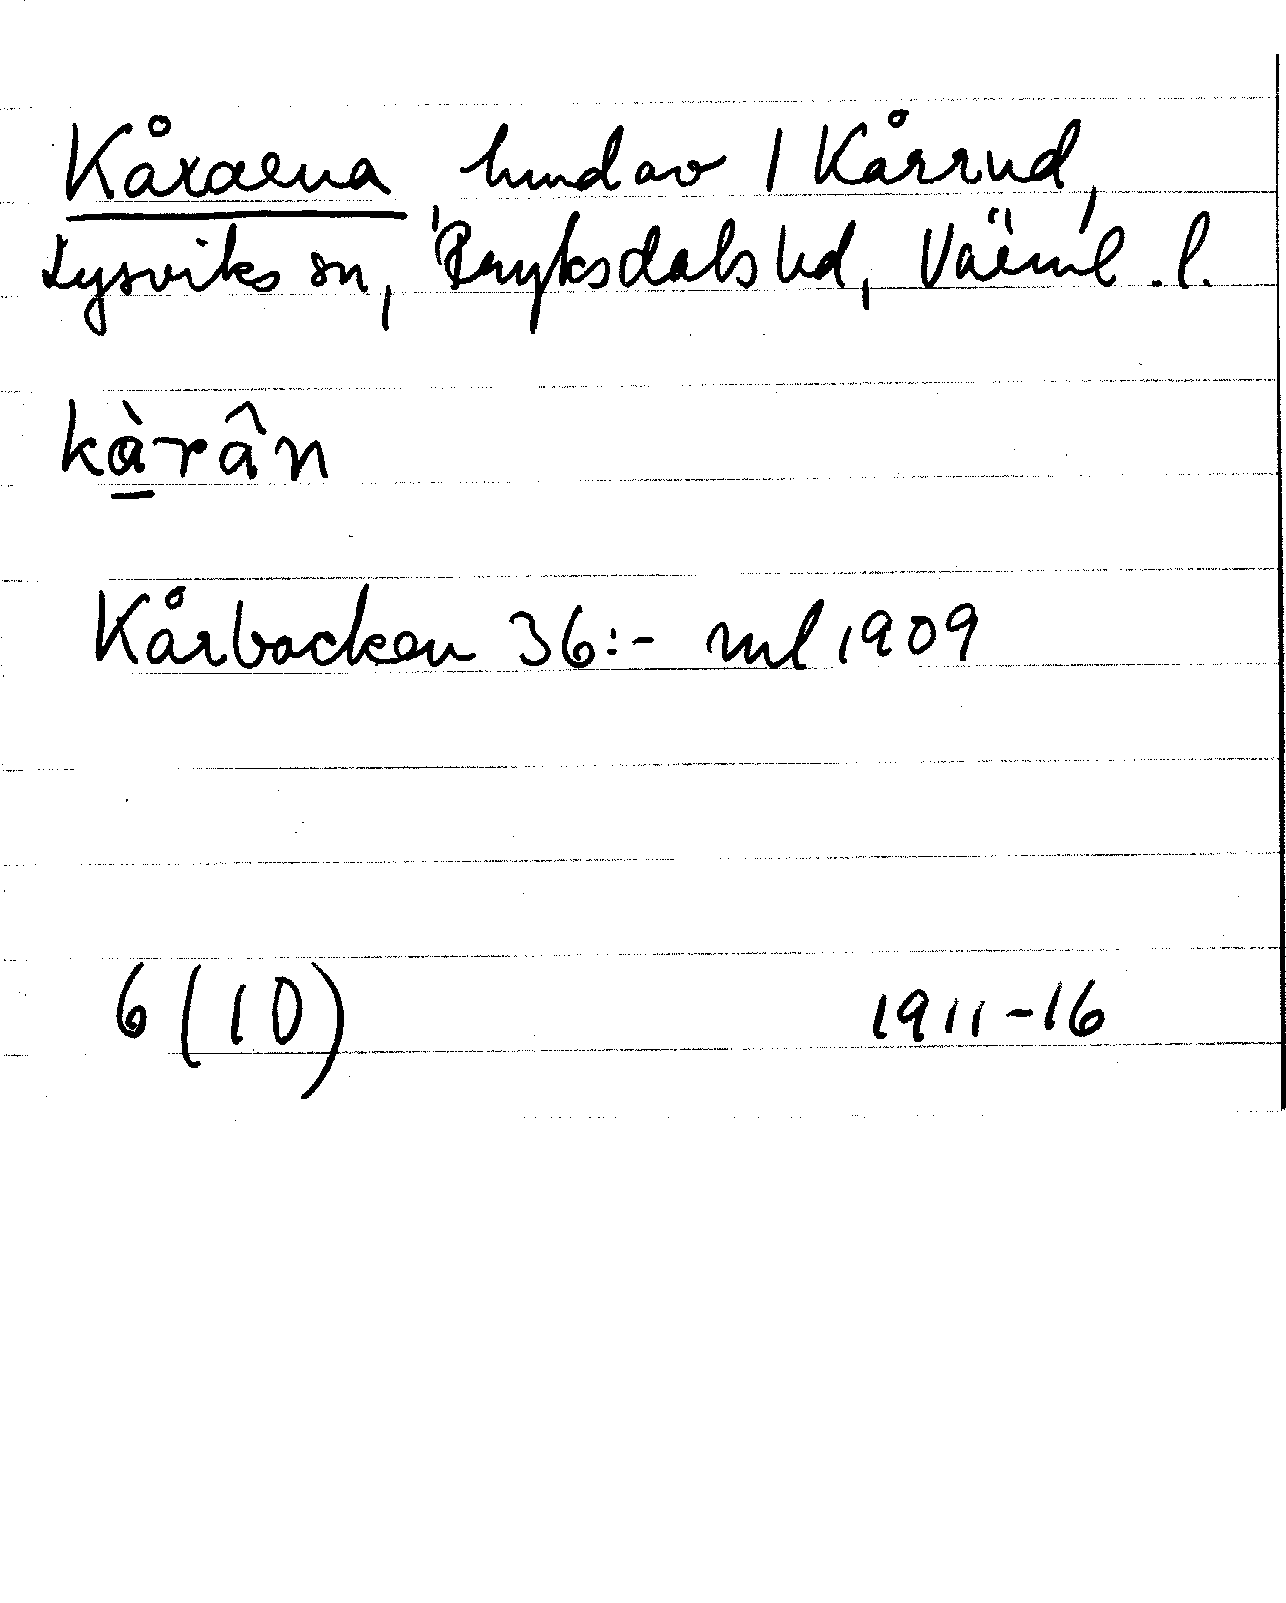 Kårarna hmd av 1 Kårrud,
Lysviks sn, Fryksdals hd, Värml. l.
kàrân
Kårbacken 36:- ml 1909
6 (10) 1911-16